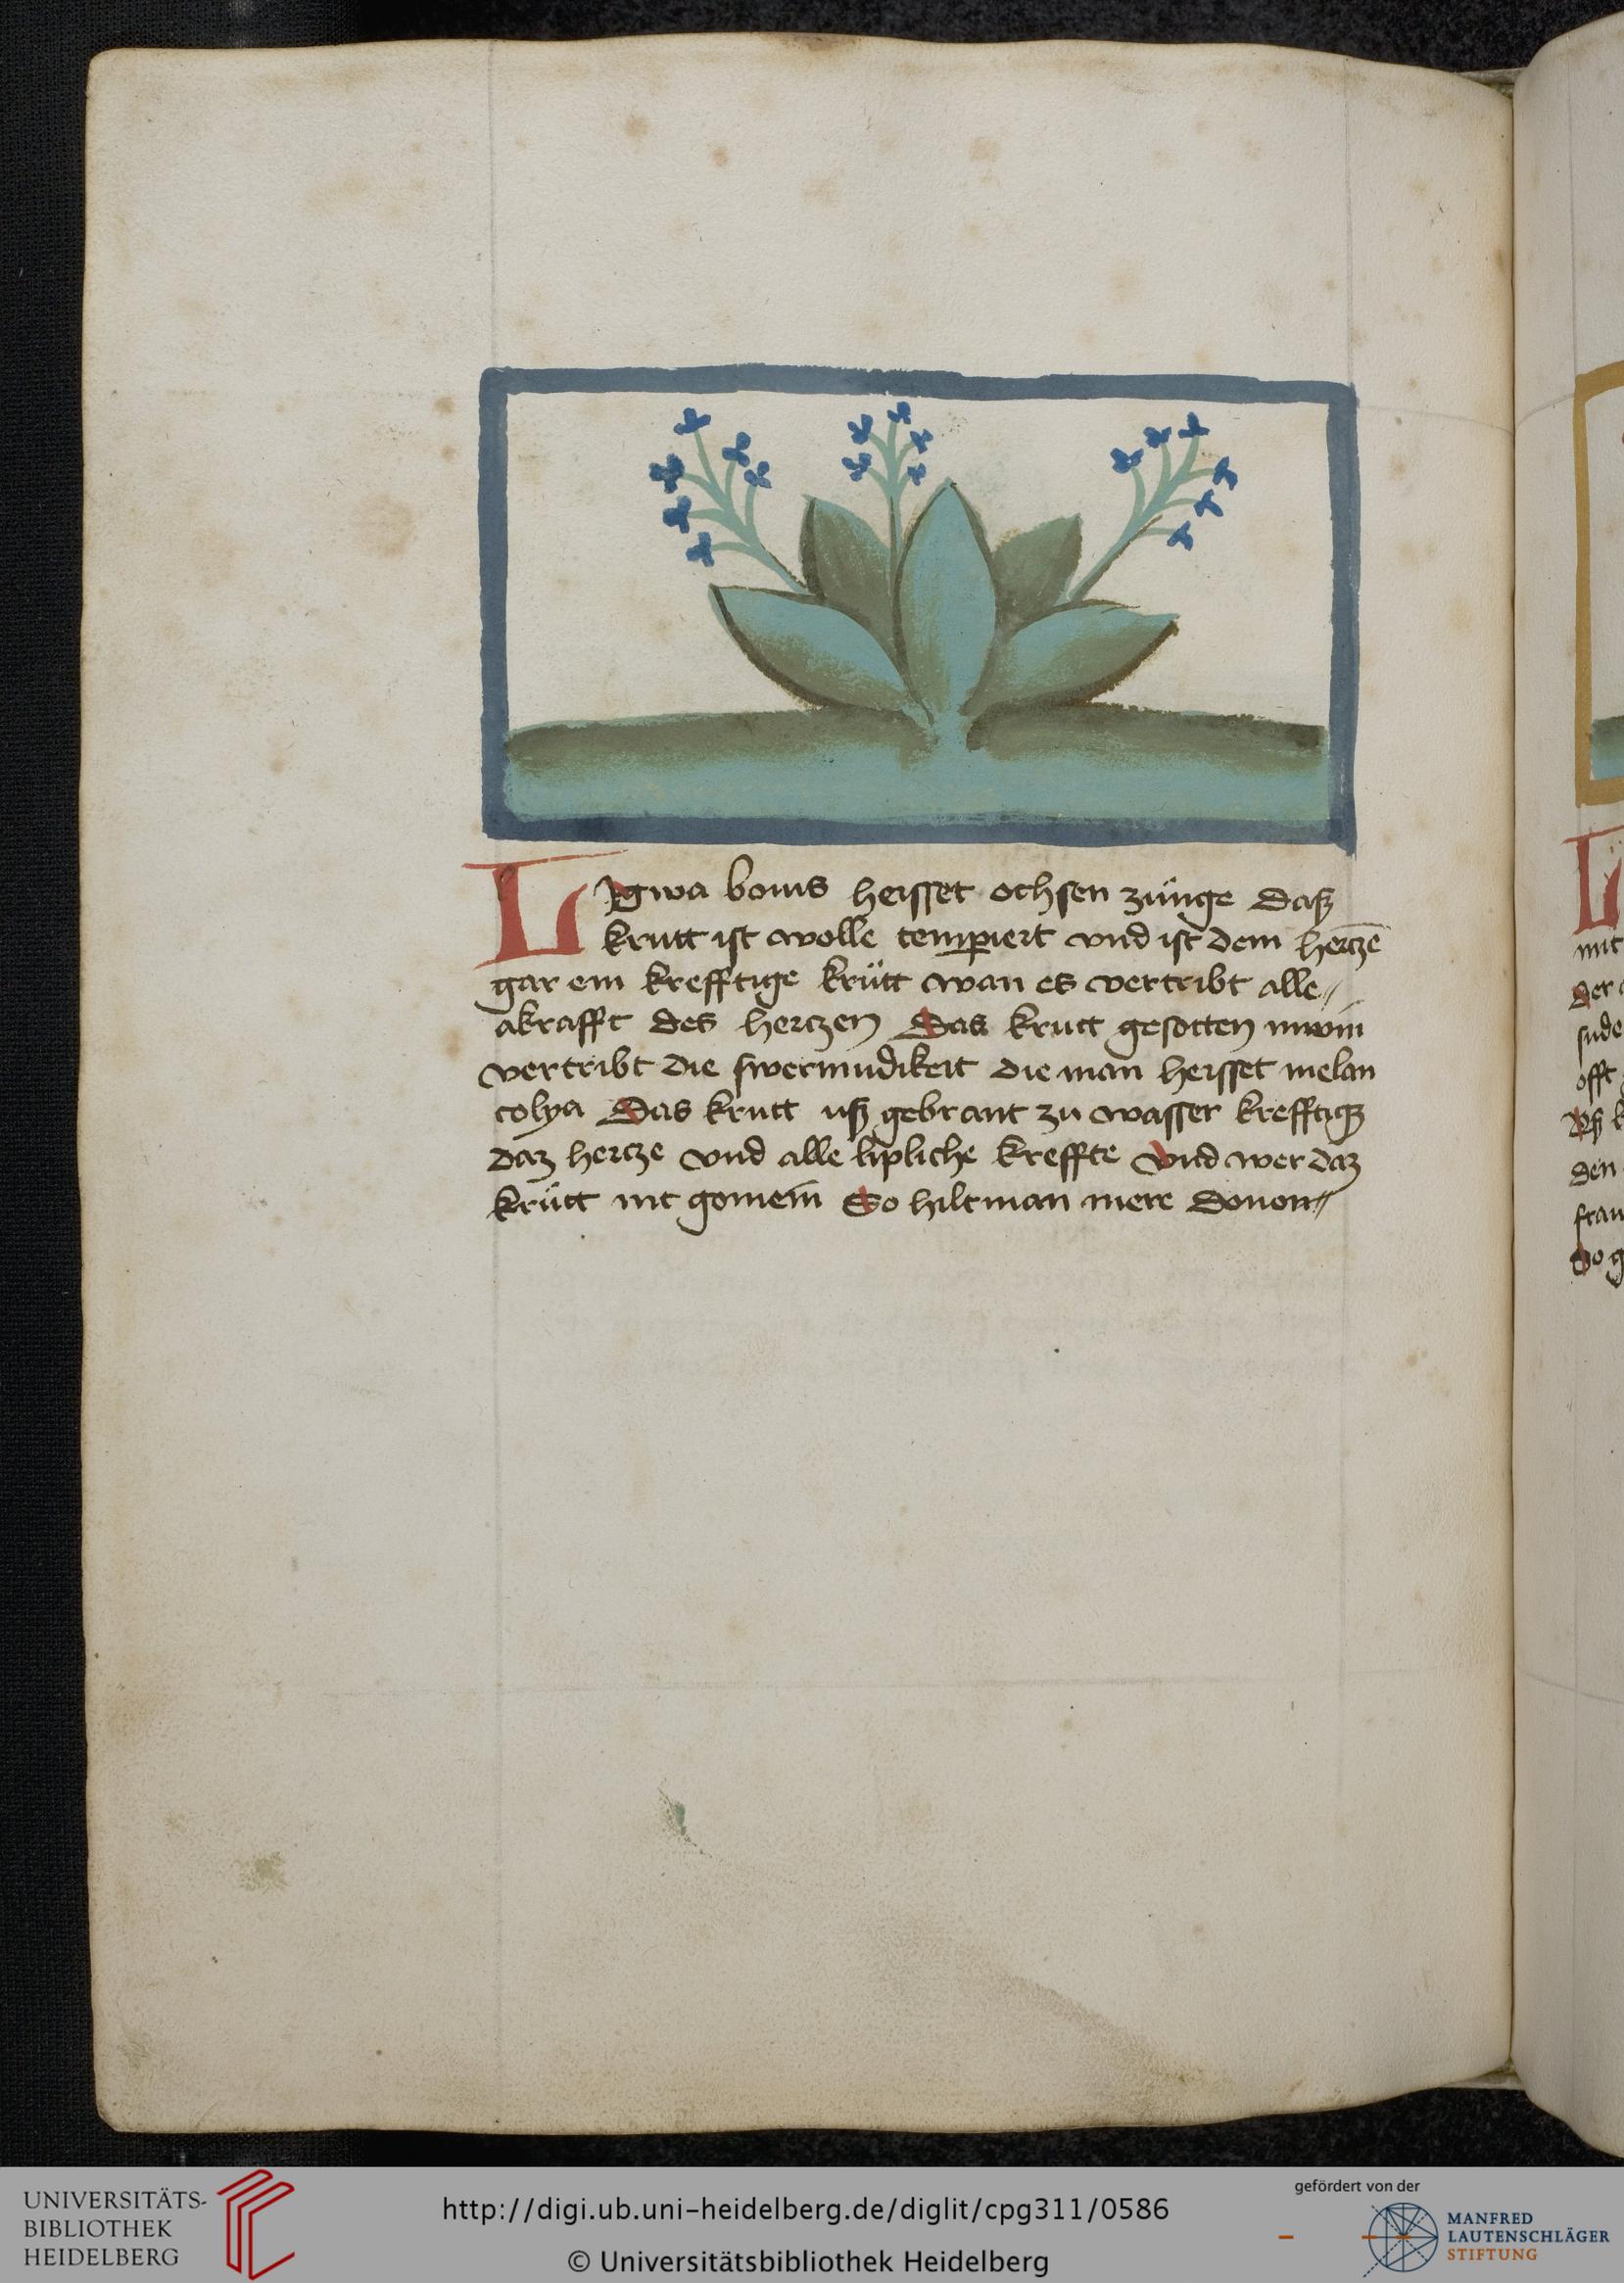 Lingwa bouis heisset ochsen zünge Daß
krutt ist wolle tempiert vnd ist dem hertzē
gar ein krefftige krütt wan es vertribt alle
akrafft des hertzen Das krutt gesotten in win
vertribt die swermudikeit die man heisset melan
colya Das krutt uß gebrant zu wasser krefftig
daz hertze vnd alle lipliche kreffte Vnd wer daz
krütt nit So hilt man mere douon
mit
sude
offt
den
frau
So g
UNIVERSITÄTS-
BIBLIOTHEK
HEIDELBERG
http://digi.ub.uni-heidelberg.de/diglit/cpg311/0586
© Universitätsbibliothek Heidelberg
gefördert von der
MANFRED
LAUTENSCHLÄGER
STIFTUNG